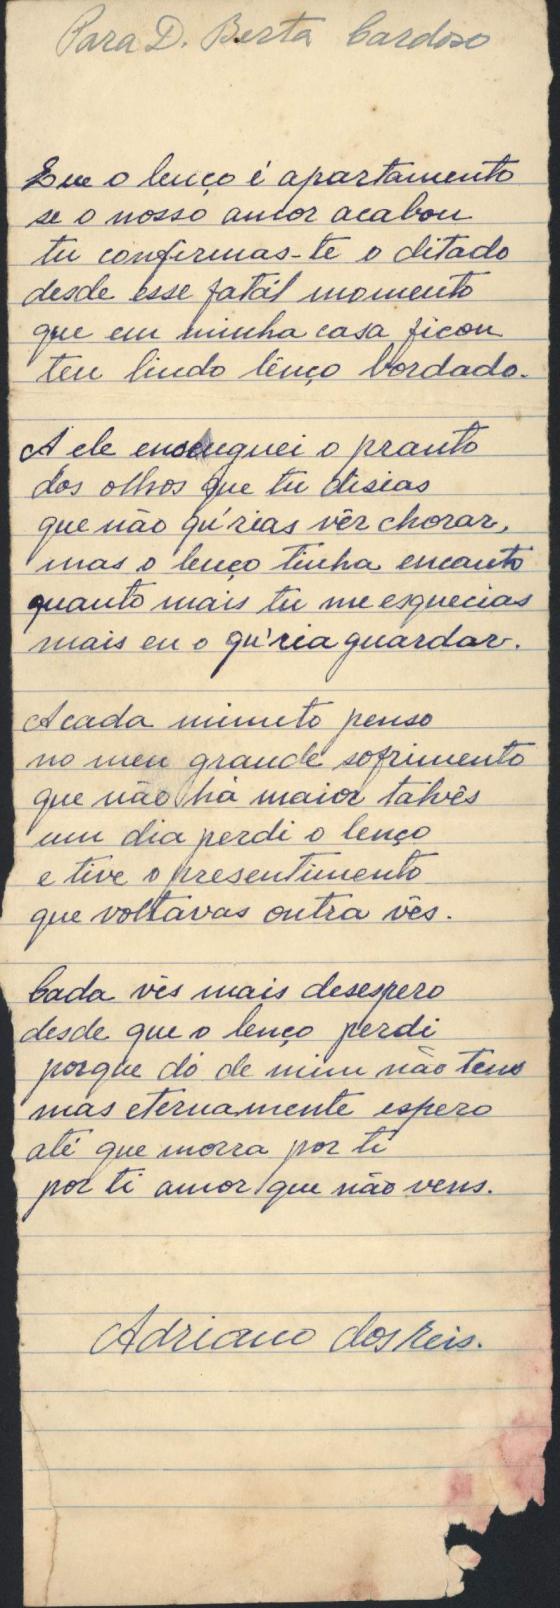 Para D. Berta Cardoso
Que o lenço é apartamento
se o nosso amor acabou
tu confirmas-te o ditado
desde esse fatál momento
que em minha casa ficou
teu lindo lênço bordado.
A ele enxuguei o pranto
dos olhos que tu disias
que não qu'rias vêr chorar,
mas o lenço tinha encanto
quanto mais tu me esquecias
mais eu o qu'ria guardar.
Acada minuto penso
no meu grande sofrimento
que não há maior talvês
um dia perdi o lenço
e tive o presentimento
que voltavas outra vês.
Cada vês mais desespero
desde que o lenço perdi
porque dó de mim não tens
mas eternamente espero
até que morra por ti
por ti amor que não vens.
Adriano dos Reis.